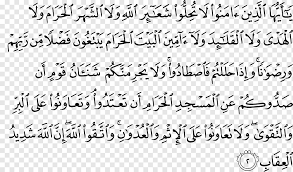 يَـٰٓأَيُّهَا ٱلَّذِينَ ءَامَنُوا۟ لَا تُحِلُّوا۟ شَعَـٰٓئِرَ ٱللَّهِ وَلَا ٱلشَّهْرَ ٱلْحَرَامَ وَلَا
ٱلْهَدْىَ وَلَا ٱلْقَلَـٰٓئِدَ وَلَآ ءَآمِّينَ ٱلْبَيْتَ ٱلْحَرَامَ يَبْتَغُونَ فَضْلًا مِّن رَّبِّهِمْ
وَرِضْوَٰنًا ۚ وَإِذَا حَلَلْتُمْ فَٱصْطَادُوا۟ ۚ وَلَا يَجْرِمَنَّكُمْ شَنَـَٔانُ قَوْمٍ أَن
صَدُّوكُمْ عَنِ ٱلْمَسْجِدِ ٱلْحَرَامِ أَن تَعْتَدُوا۟ ۘ وَتَعَاوَنُوا۟ عَلَى ٱلْبِرِّ
وَٱلتَّقْوَىٰ ۖ وَلَا تَعَاوَنُوا۟ عَلَى ٱلْإِثْمِ وَٱلْعُدْوَٰنِ ۚ وَٱتَّقُوا۟ ٱللَّهَ ۖ إِنَّ ٱللَّهَ شَدِيدُ
ٱلْعِقَابِ ٢